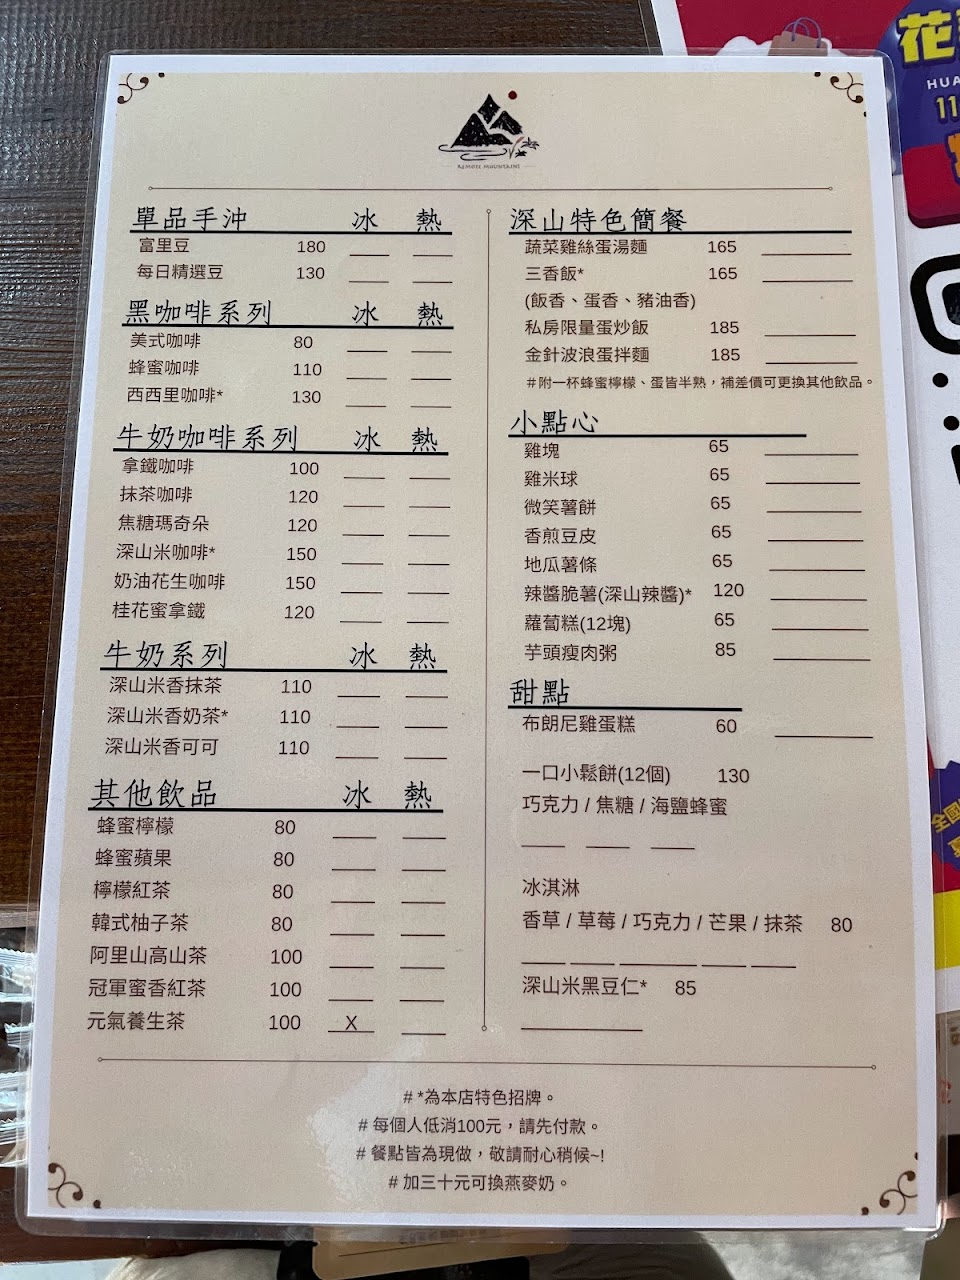 REMOTE MOUNTAINS
單品手沖 冰 熱
富里豆 180
每日精選豆 130
黑咖啡系列 冰 熱
美式咖啡 80
蜂蜜咖啡 110
西西里咖啡* 130
牛奶咖啡系列 冰 熱
拿鐵咖啡 100
抹茶咖啡 120
焦糖瑪奇朵 120
深山米咖啡* 150
奶油花生咖啡 150
桂花蜜拿鐵 120
牛奶系列 冰 熱
深山米香抹茶 110
深山米香奶茶* 110
深山米香可可 110
其他飲品 冰 熱
蜂蜜檸檬 80
蜂蜜蘋果 80
檸檬紅茶 80
韓式柚子茶 80
阿里山高山茶 100
冠軍蜜香紅茶 100
元氣養生茶 100 X
深山特色簡餐
蔬菜雞絲蛋湯麵 165
三香飯* 165
(飯香、蛋香、豬油香)
私房限量蛋炒飯 185
金針波浪蛋拌麵 185
#附一杯蜂蜜檸檬、蛋皆半熟，補差價可更換其他飲品。
小點心
雞塊 65
雞米球 65
微笑薯餅 65
香煎豆皮 65
地瓜薯條 65
辣醬脆薯(深山辣醬)* 120
蘿蔔糕(12塊) 65
芋頭瘦肉粥 85
甜點
布朗尼雞蛋糕 60
一口小鬆餅(12個) 130
巧克力 / 焦糖 / 海鹽蜂蜜
冰淇淋
香草 / 草莓 / 巧克力 / 芒果 / 抹茶 80
深山米黑豆仁* 85
# *為本店特色招牌。
# 每個人低消100元，請先付款。
# 餐點皆為現做，敬請耐心稍候~!
# 加三十元可換燕麥奶。
花
HUA
11
全國